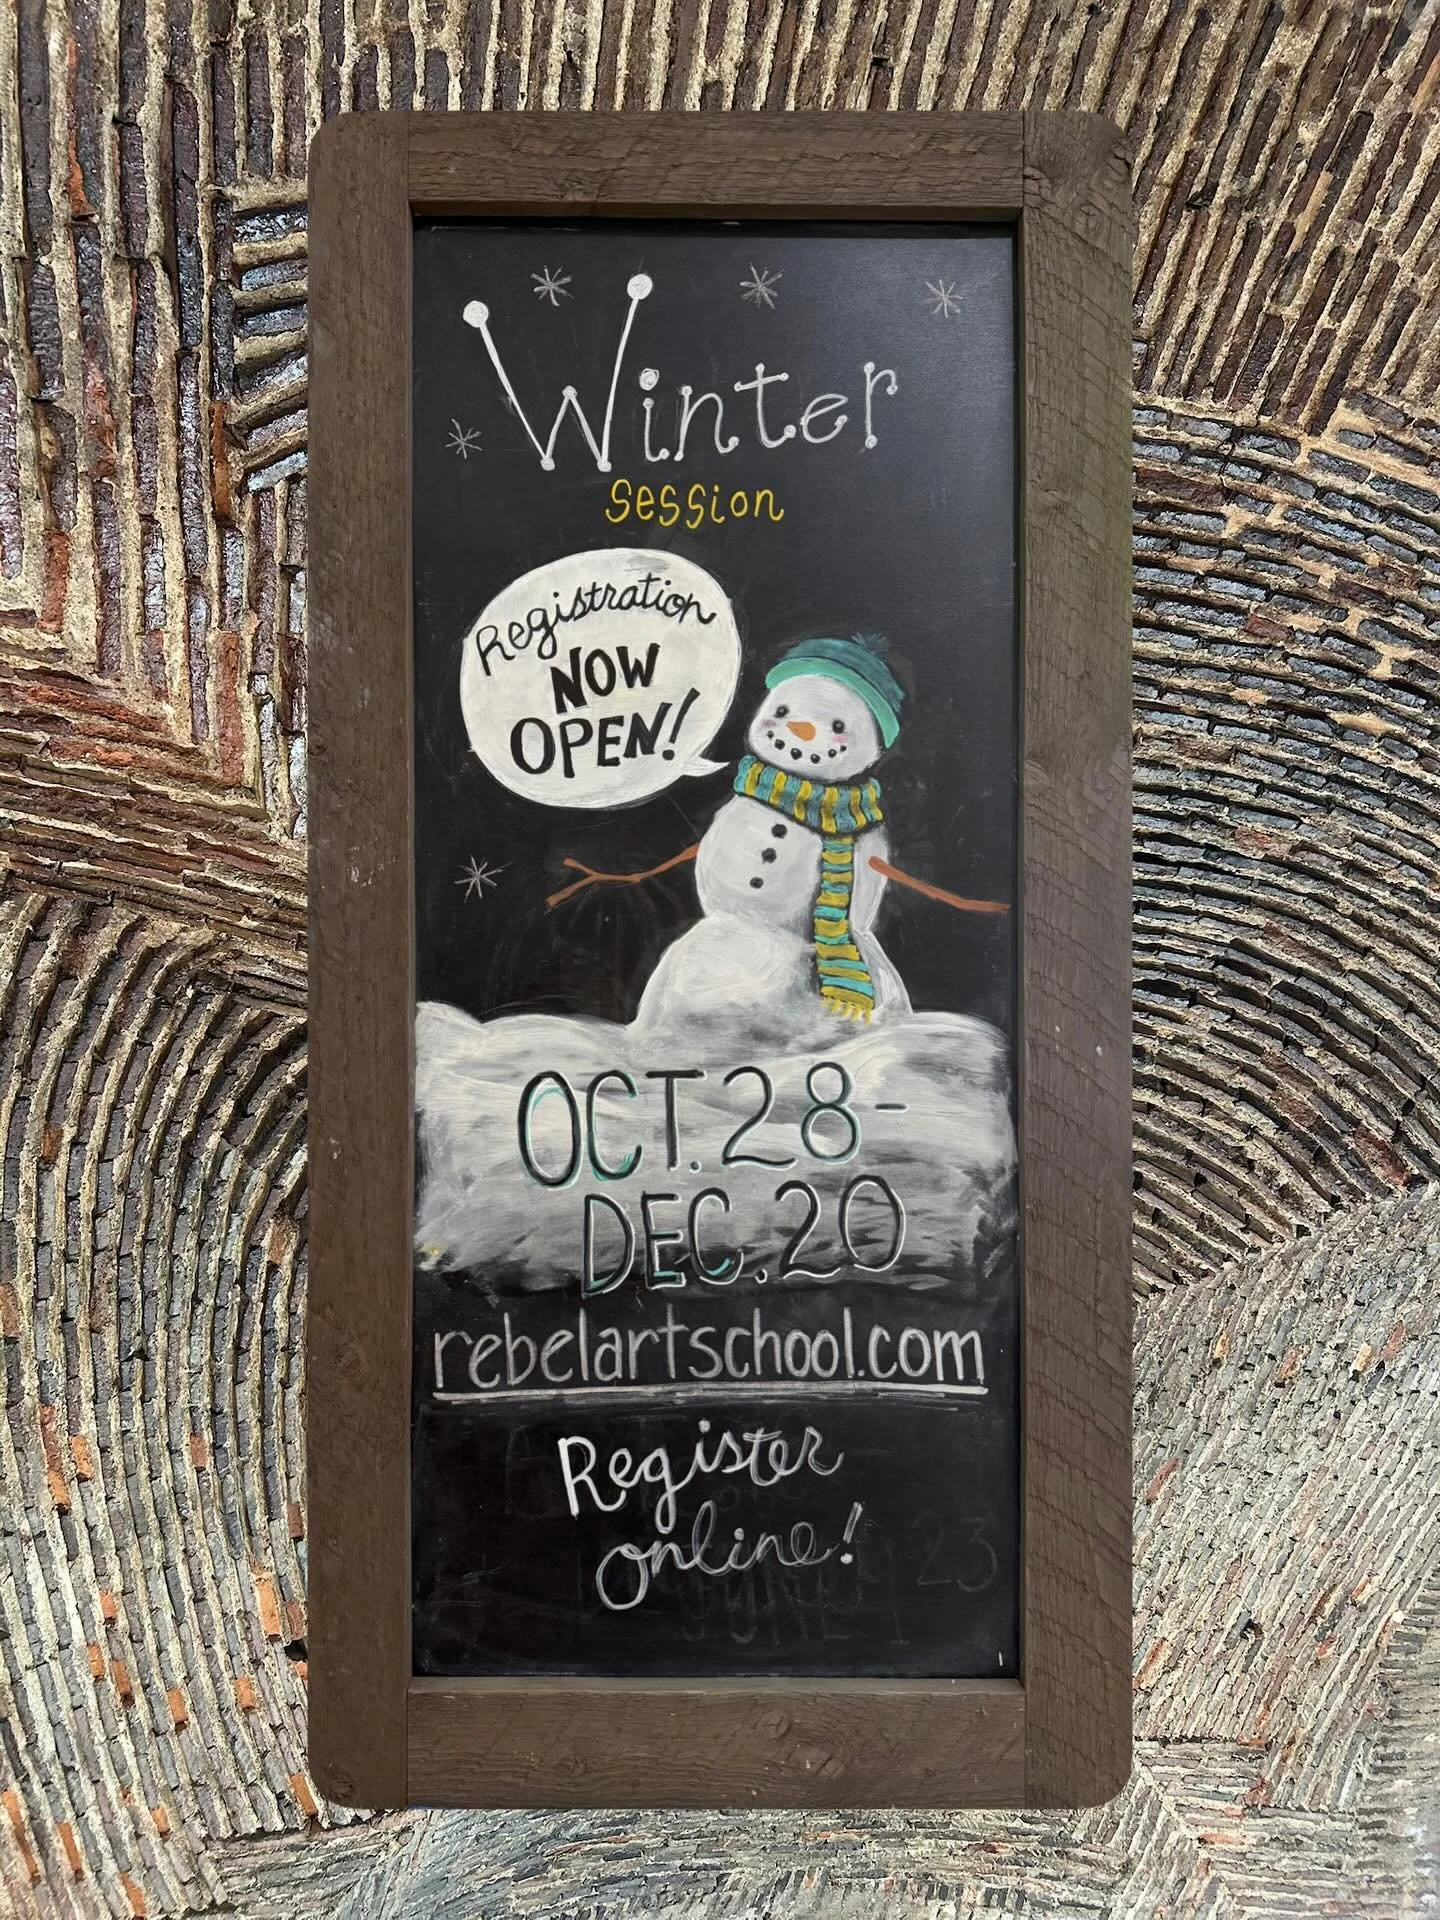 Winter
session
Registration
NOW
OPEN!
OCT. 28-
DEC. 20
rebelartschool.com
Register
online!
23